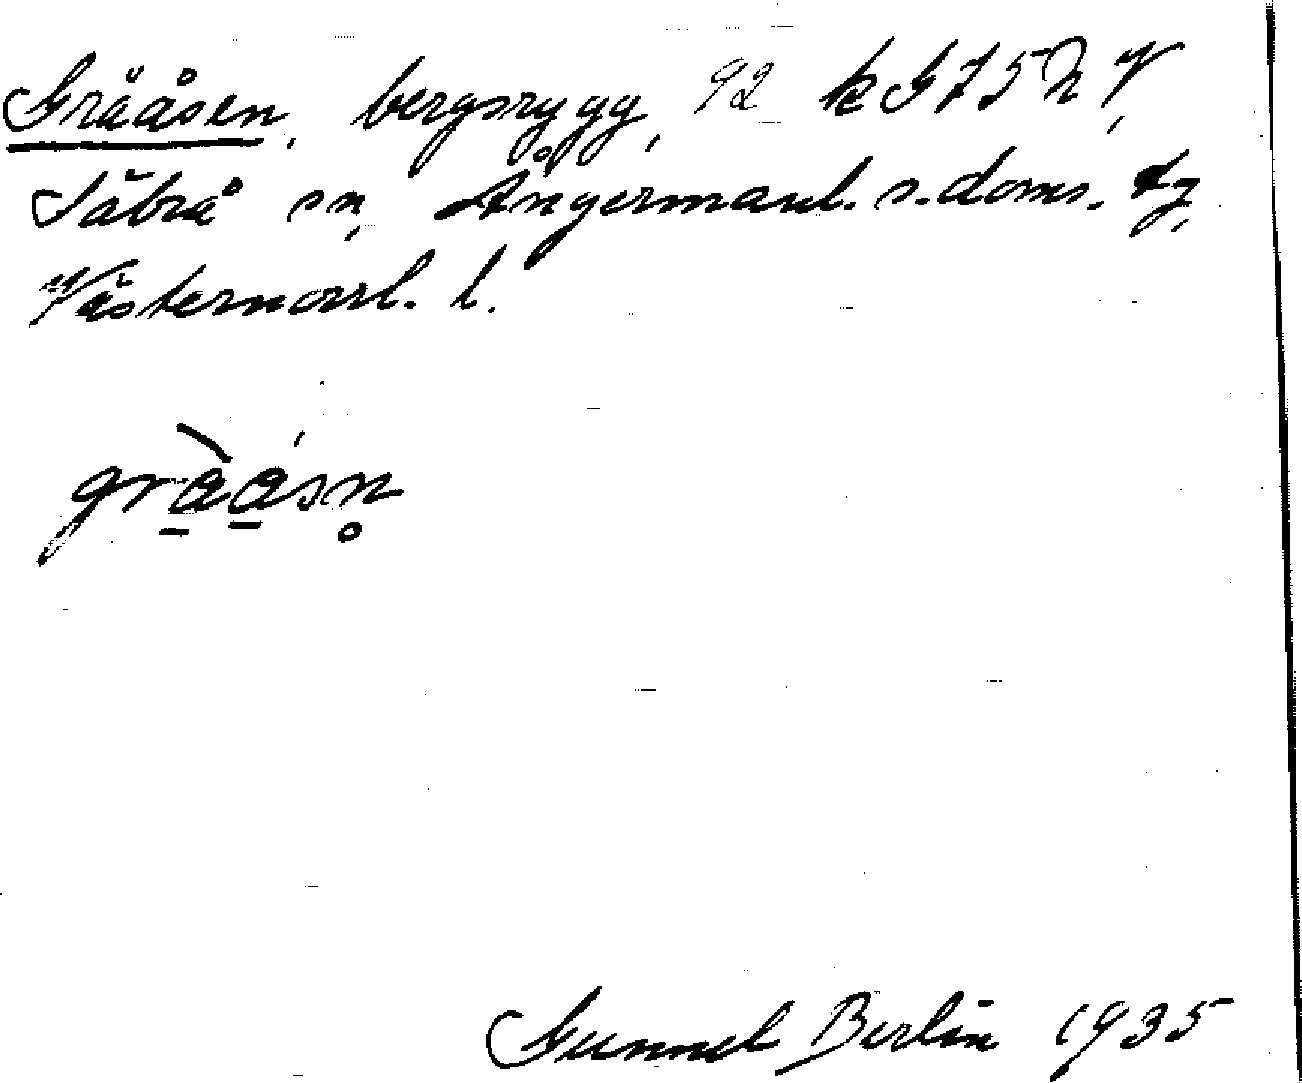 Grååsen, bergsrygg, 92 k G 75 h V,
Säbrå sn, Ångermanl. s. doms. tg,
Västernorrl. l.
gràásn̥
Gunnel Berlin 1935